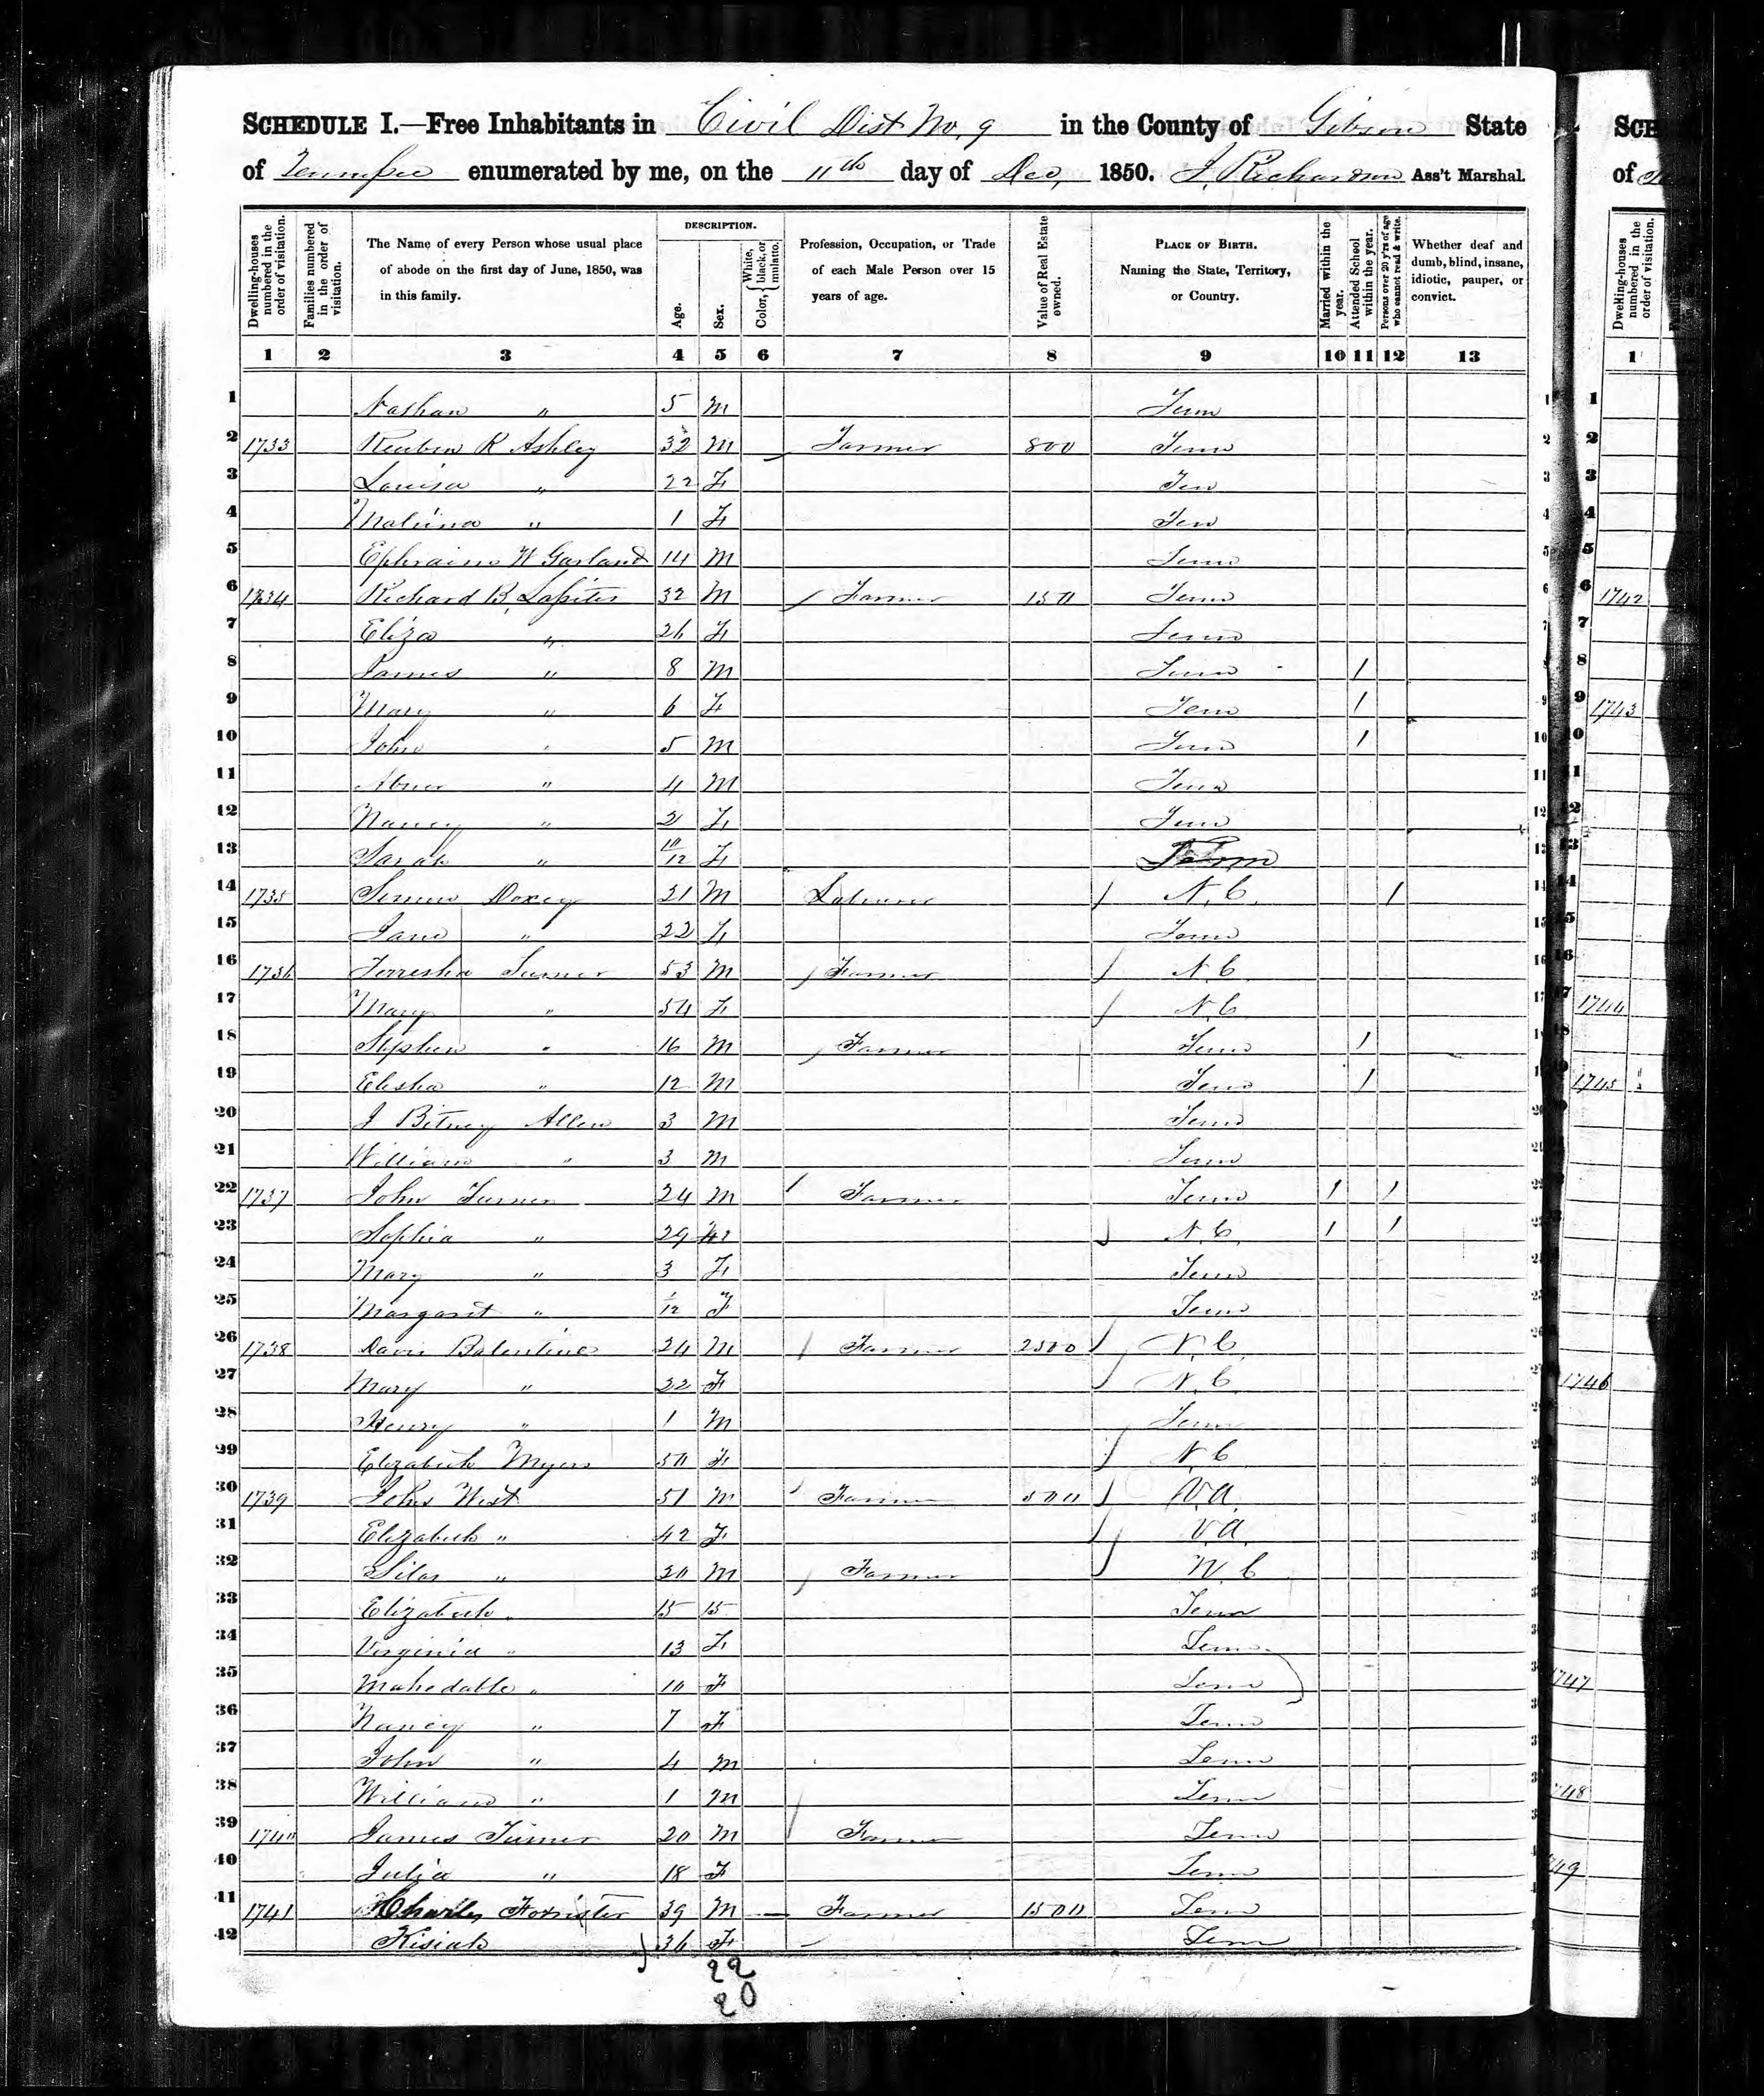 SCHEDULE I.—Free Inhabitants in Civil Dist No. 9 in the County of Gibson State
of Tennessee enumerated by me, on the 11th day of Dec, 1850. J. Richardson Ass't Marshal.
Dwelling-houses numbered in the order of visitation.
Families numbered in the order of visitation.
The Name of every Person whose usual place of abode on the first day of June, 1850, was in this family.
DESCRIPTION.
Age.
Sex.
Color, { White, black, or mulatto.
Profession, Occupation, or Trade of each Male Person over 15 years of age.
Value of Real Estate owned.
PLACE OF BIRTH. Naming the State, Territory, or Country.
Married within the year.
Attended School within the year.
Persons over 20 y'rs of age who cannot read & write.
Whether deaf and dumb, blind, insane, idiotic, pauper, or convict.
1 2 3 4 5 6 7 8 9 10 11 12 13
1 Nathan " 5 M Tenn
2 1733 Reuben R Ashley 32 M Farmer 800 Tenn
3 Louisa " 22 F Ten
4 Malvina " 1 F Ten
5 Ephraim W Garland 14 M Tenn
6 1734 Richard B Lasiter 32 M Farmer 150 Tenn
7 Eliza " 26 F Tenn
8 James " 8 M Tenn 1
9 Mary " 6 F Tenn 1
10 John " 5 M Tenn 1
11 Abner " 4 M Tenn
12 Nancy " 2 F Tenn
13 Sarah " 10/12 F Tenn
14 1735 Doxey 21 M Laborer N.C. 1
15 Jane " 22 F Tenn
16 1736 Turner 53 M Farmer N C
17 Mary " 54 F N.C.
18 Stephen " 16 M Farmer Tenn 1
19 Elisha " 12 M Tenn 1
20 J Allen 3 M Tenn
21 William " 3 M Tenn
22 1737 John Turner 24 M Farmer Tenn 1 1
23 Sophia " 29 F N.C. 1 1
24 Mary " 3 F Tenn
25 Margaret " 1/12 F Tenn
26 1738 Davis Balentine 24 M Farmer 2500 N.C.
27 Mary " 22 F N.C.
28 Henry " 1 M Tenn
29 Elizabeth Myers 50 F N.C
30 1739 John West 51 M Farmer 500 V.A.
31 Elizabeth " 42 F V.A.
32 Silas " 20 M Farmer N.C
33 Elizabeth " 15 15 Tenn
34 Virginia " 13 F Tenn
35 Mahedable " 10 F Tenn
36 Nancy " 7 F Tenn
37 John " 4 M Tenn
38 William " 1 M Tenn
39 1740 James Turner 20 M Farmer Tenn
40 Julia " 18 F Tenn
41 1741 Charles Forrister 39 M Farmer 1500 Tenn
42 Kisiah 36 F Tenn
22
20
SCH
of
Dwelling-houses numbered in the order of visitation.
1
1742
1743
1744
1745
1746
1747
1748
1749